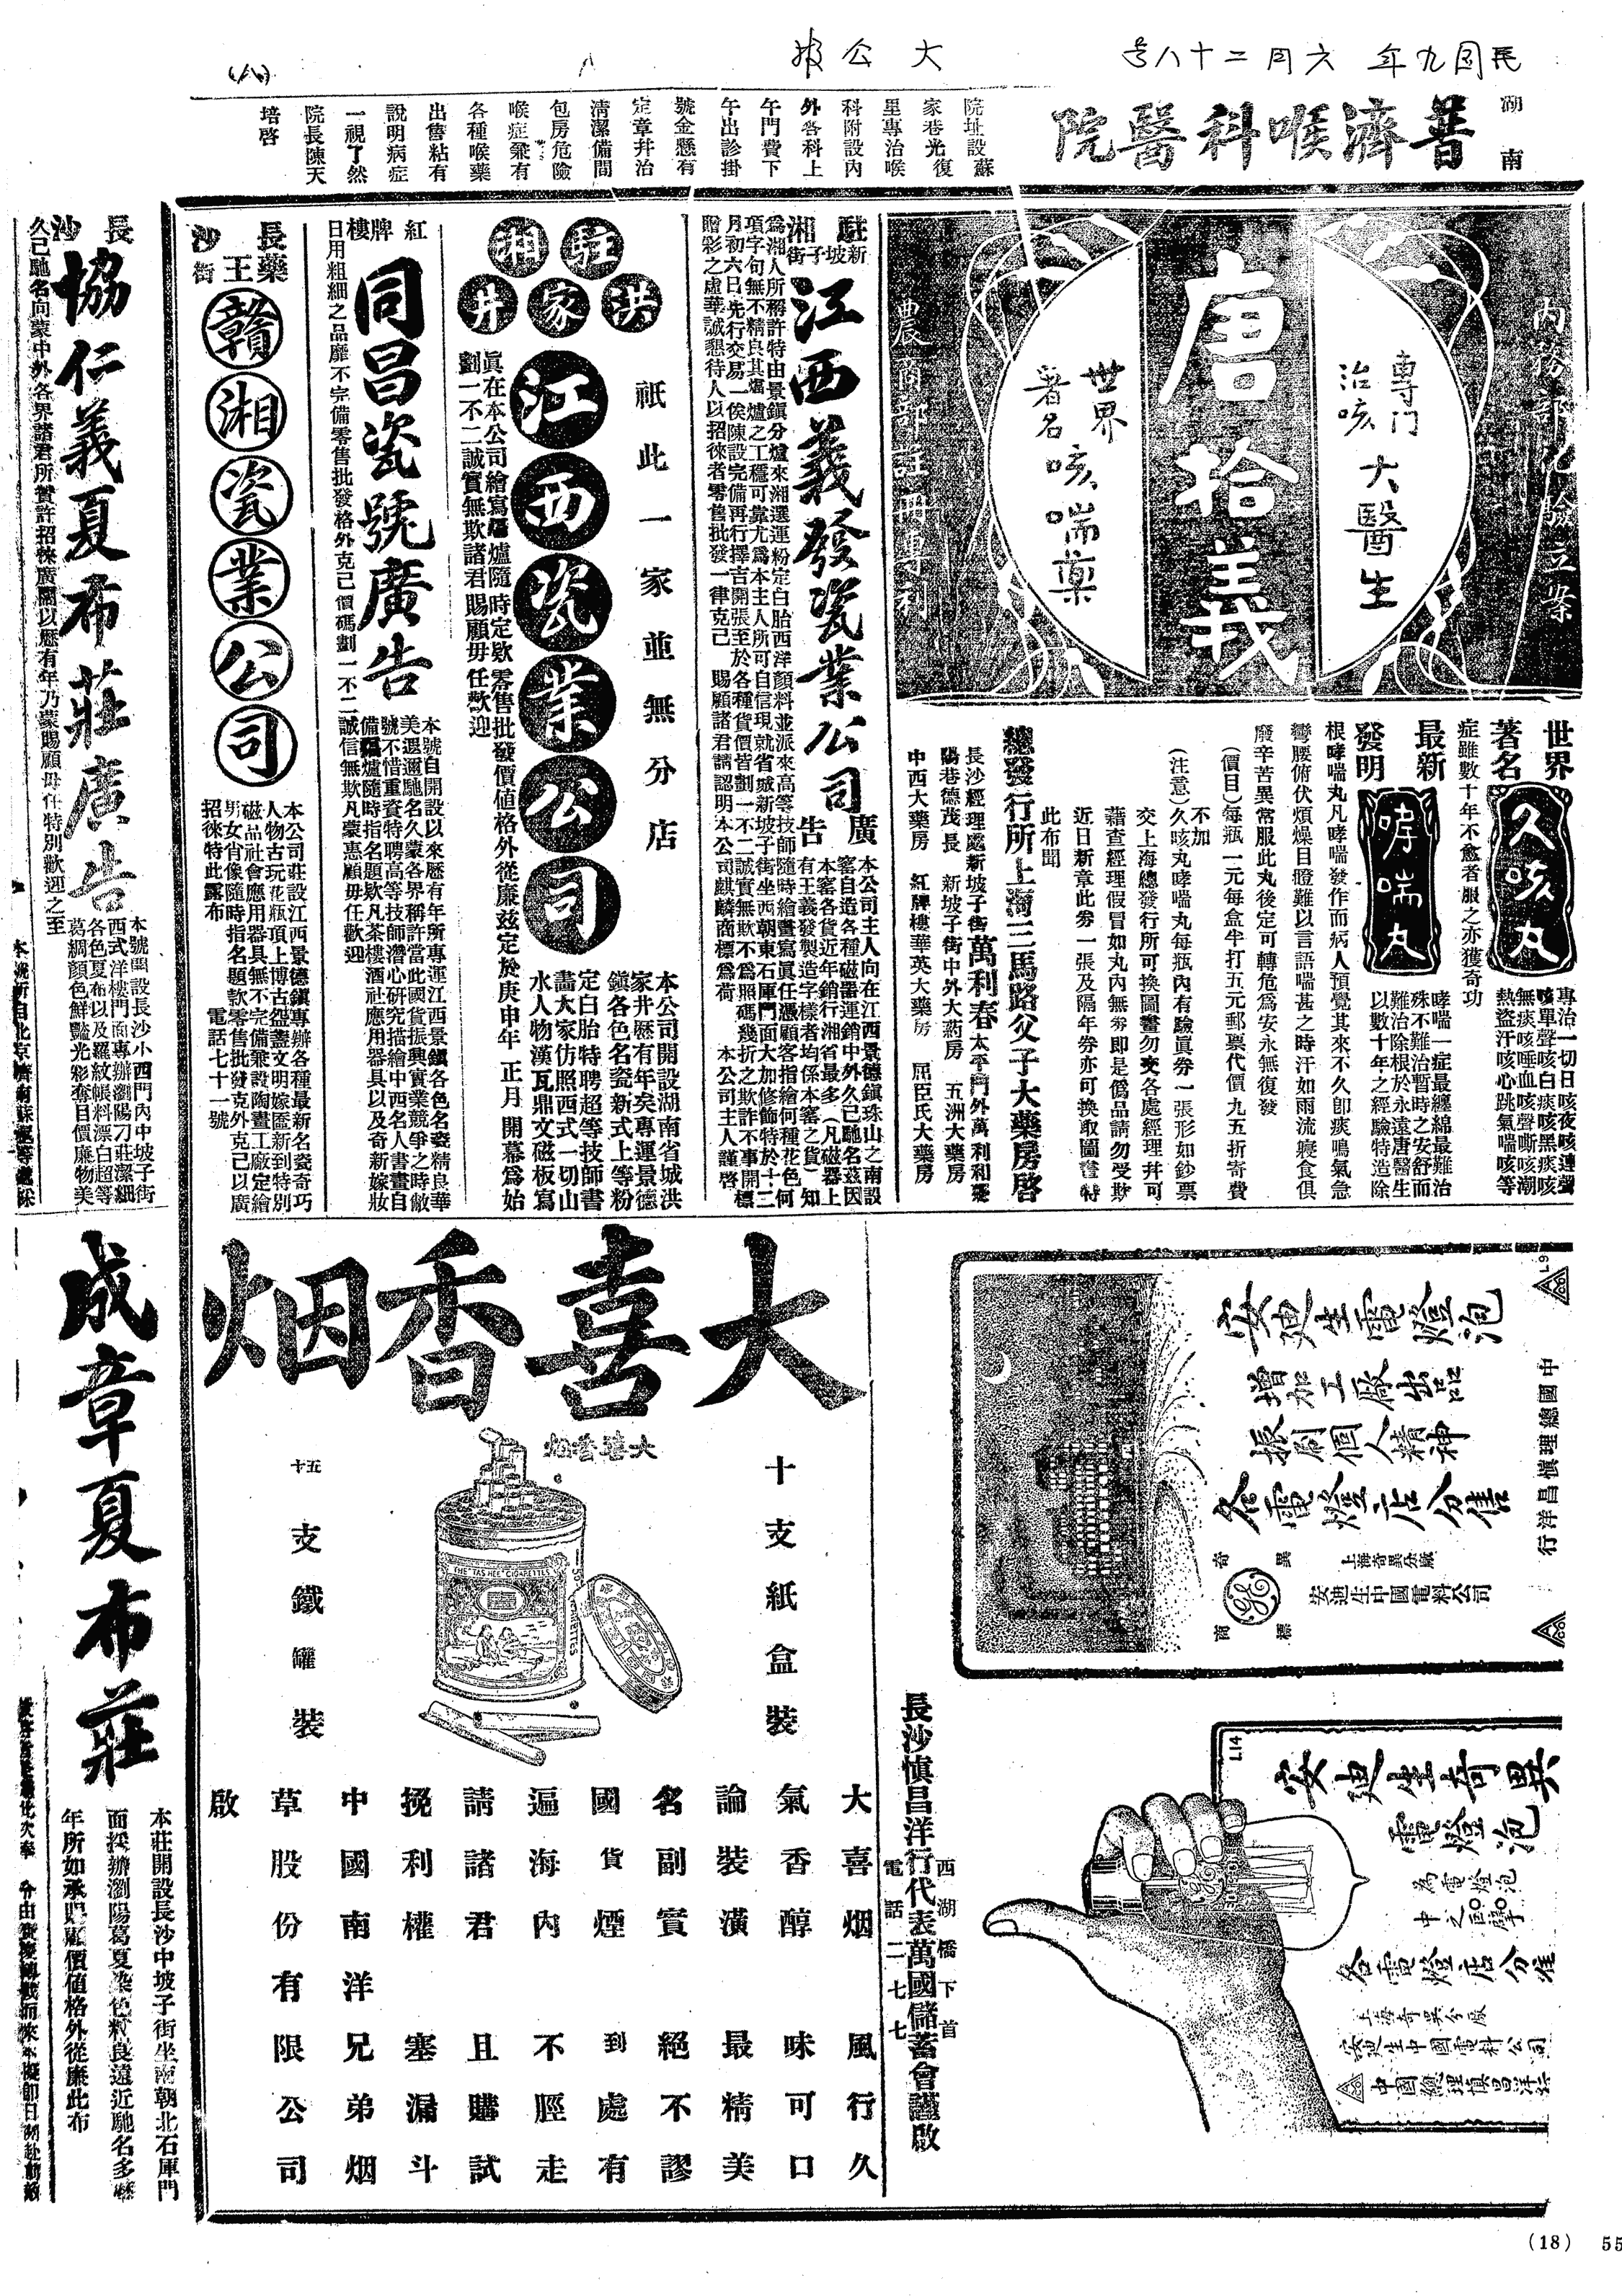 民国九年 六月二十八号
大公报
八
(八)
湖南
普濟喉科醫院
院址設蘇
家巷光復
里專治喉
科附設內
外各科上
午門費下
午出診掛
號金懸有
定章幷治
清潔備間
包房危險
喉症兼有
各種喉藥
出售粘有
說明病症
一視了然
院長陳天
培啓
內務部化驗立案
專门治咳大醫生
唐拾義
世界著名咳喘藥
農商部註冊專利
世界著名
久咳丸
專治一切日咳夜咳連聲
咳單聲咳白痰咳黑痰咳
無痰咳唾血咳聲嘶咳潮
熱盜汗咳心跳氣喘咳等
症雖數十年不愈者服之亦獲奇功
最新發明
哮喘丸
哮喘一症最纏綿最難治
殊不難治暫時之安舒而
難治除根於永遠唐醫生
以數十年之經驗特造除
根哮喘丸凡哮喘發作而病人預覺其來不久卽痰鳴氣急
彎腰俯伏煩燥目瞪難以言語喘甚之時汗如雨流寢食俱
廢辛苦異常服此丸後定可轉危爲安永無復發
(價目)每瓶一元每盒半打五元郵票代價九五折寄費
不加
(注意)久咳丸哮喘丸每瓶內有驗眞券一張形如鈔票
交上海總發行所可換圖畫勿交各處經理幷可
藉查經理假冒如丸內無券即是僞品請勿受欺
近日新章此券一張及隔年券亦可換取圖書特
此布聞
總發行所上海三馬路父子大藥房啓
長沙經理處新坡子街萬利春太平門外萬利和
陽巷德茂長 新坡子街中外大药房 五洲大藥房
中西大藥房 紅牌樓華英大藥房 屈臣氏大藥房
駐湘新坡子街
江西義發瓷業公司廣告
本公司主人向在江西景德鎮珠山之南設
窰自造各種磁器運銷中外久已馳名茲因
本窰各貨近年銷行湘省最多(凡磁器上
有王義發製造字樣者均係本窰之貨)知
爲湘人所稱許特由景鎮分爐來湘選運粉定白胎西洋顏料並派來高等技師隨時繪畫寫眞任憑顧客指繪何種花色何
項字句無不精良其爐之工穩可靠尤爲本主人所可自信現就省城新坡子街坐西朝東石庫門面大加修飾特於十二
月初六日先行交易一俟陳設完備再行擇吉開張至於各種貨價皆劃一不二誠實無欺不爲照碼幾折之欺詐不事開標
贈彩之虛華誠懇待人以招徠者零售批發一律克己 賜顧諸君請認明本公司麒麟商標爲荷 本公司主人謹啓
駐湘洪家井
江西瓷業公司
祇此一家並無分店
本公司開設湖南省城洪
家井歷有年矣專運景德
鎮各色名瓷新式上等粉
定白胎特聘超等技師書
畫大家仿照西式一切山
水人物漢瓦鼎文磁板寫
眞在本公司繪寫爐隨時定欵零售批發價値格外從廉茲定於庚申年正月開幕爲始
劃一不二誠實無欺諸君賜顧毋任歡迎
紅牌樓
同昌瓷號廣告
本號自開設以來歷有年所專運江西景鎮各色名瓷精良華
美遐邇馳名久蒙各界稱許當此國貨振興實業競爭之時敝
號不惜重資特聘高等技師潛心研究描繪中西名人書畫自
備爐隨時指名題欵凡茶樓酒社應用器具以及奇新嫁妝
日用粗細之品靡不完備零售批發格外克己價碼劃一不二
誠信無欺凡蒙惠顧毋任歡迎
長沙藥王街
贛湘瓷業公司
本公司莊設江西景德鎮專辦各種最新名瓷奇巧
人物古玩花瓶項上博古盌盞文明嫁匳新到特別
磁品社會應用器具無不完備兼設陶畫工廠定繪
男女肖像隨時指名題款零售批發克外克己以廣
招徠特此露布 電話七十一號
長沙
協仁義夏布莊廣告
本號開設長沙小西門內中坡子街
西式洋樓門面專辦瀏陽刀莊潔細
各色夏布以及羅紋帳料漂白超等
葛綢顏色鮮豔光彩奪目價廉物美
久已馳名向蒙中外各界諸君所贊許招徠廣闊以歷有年乃蒙賜顧毋任特別歡迎之至
成章夏布莊
本莊開設長沙中坡子街坐南朝北石庫門
面採辦瀏陽葛夏染色料良遠近馳名多歷
年所如承賜顧價値格外從廉此布
大喜香烟
大喜香烟
十支紙盒裝
五十支鐵罐裝
THE "TAS HEE" CIGARETTES
大喜烟 風行久
氣香醇 味可口
論裝潢 最精美
名副實 絕不謬
國貨煙 到處有
遍海內 不脛走
請諸君 且購試
挽利權 塞漏斗
中國南洋兄弟烟
草股份有限公司
啟
L9
安廸生電燈泡
增加工廠出品
振刷個人精神
各電燈店分售
奇異商標
上海奇異分廠
安迪生中國電料公司
中國總理愼昌洋行
L14
安廸生奇異
電燈泡
為電燈泡
中之巨擘
各電燈店分售
上海奇異分廠
安廸生中國電料公司
中國總理慎昌洋行
長沙愼昌洋行代表萬國儲蓄會謹啟
西湖橋下首
電話二七七
(18)
55